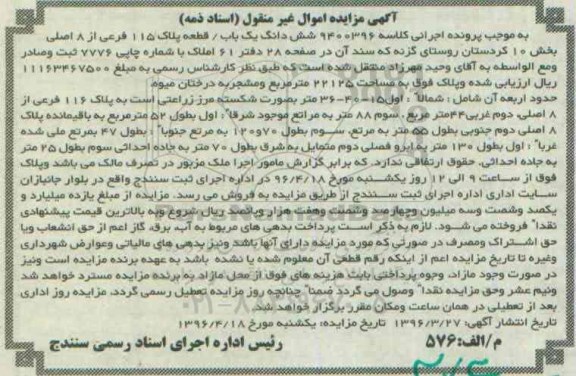 آگهی مزایده اموال غیر منقول (اسناد ذمه)
به موجب پرونده اجرائی کلاسه ۹۴۰۰۳۹۶ شش دانگ یک باب/ قطعه پلاک ۱۱۵ فرعی از ۸ اصلی
بخش ۱۰ کردستان روستای گزنه که سند آن در صفحه ۲۸ دفتر ۶۱ املاک با شماره چاپی ۷۷۷۶ ثبت وصادر
ومع الواسطه به آقای وحید مهرزاد منتقل شده است که طبق نظر کارشناس رسمی به مبلغ ۱۱۱۶۳۴۶۷۵۰۰
ریال ارزیابی شده وپلاک فوق به مساحت ۲۲۱۲۵ مترمربع ومشجر به درختان میوه
حدود اربعه آن شامل: شمالاً: اول ۴،۵۱۵-۳۶ متر بصورت شکسته مرز زراعتی است به پلاک ۱۱۶ فرعی از
۸ اصلی، دوم غربی ۴۴متر مربع. سوم ۸۸ متر به مراتع موجود شرقاً: اول بطول ۵۲ مترمربع به باقیمانده پلاک
۸ اصلی دوم جنوبی بطول ۵۵ متر به مرتع، سوم بطول ۷۰و۱۲۰ به مرتع جنوباً: بطول ۴۷ بمرتع ملی شده
غرباً: اول بطول ۱۳۰ متر به آبرو فصلی دوم متمایل به شرق بطول ۷۰ متر به جاده احداثی سوم بطول ۲۵ متر
به جاده احداثی، حقوق ارتفاقی ندارد. که برابر گزارش مامور اجرا ملک مزبور در تصرف مالک می باشد وپلاک
فوق از ساعت ۹ الی ۱۲ روز یکشنبه مورخ ۹۶/۴/۱۸ در اداره اجرای ثبت سنندج واقع در بلوار جانبازان
سایت اداری اداره اجرای ثبت سنندج از طریق مزایده به فروش می رسد. مزایده از مبلغ یازده میلیارد و
یکصد وشصت وسه میلیون وچهارصد وشصت وهفت هزار وپانصد ریال شروع وبه بالاترین قیمت پیشنهادی
نقداً فروخته می شود. لازم به ذکر است پرداخت بدهی های مربوط به آب، برق، گاز اعم از حق انشعاب ویا
حق اشتراک ومصرف در صورتی که مورد مزایده دارای آنها باشد ونیز بدهی های مالیاتی وعوارض شهرداری
وغیره تا تاریخ مزایده اعم از اینکه رقم قطعی آن معلوم شده یا نشده باشد به عهده برنده مزایده است ونیز
در صورت وجود مازاد، وجوه پرداختی بابت هزینه های فوق از محل مازاد به برنده مزایده مسترد خواهد شد
ونیم عشر وحق مزایده نقداً وصول می گردد ضمناً چنانچه روز مزایده تعطیل رسمی گردد، مزایده روز اداری
بعد از تعطیلی در همان ساعت ومکان مقرر برگزار خواهد شد.
تاریخ انتشار آگهی: ۱۳۹۶/۳/۲۷ تاریخ مزایده: یکشنبه مورخ ۱۳۹۶/۴/۱۸
م/الف: ۵۷۶ رئیس اداره اجرای اسناد رسمی سنندج